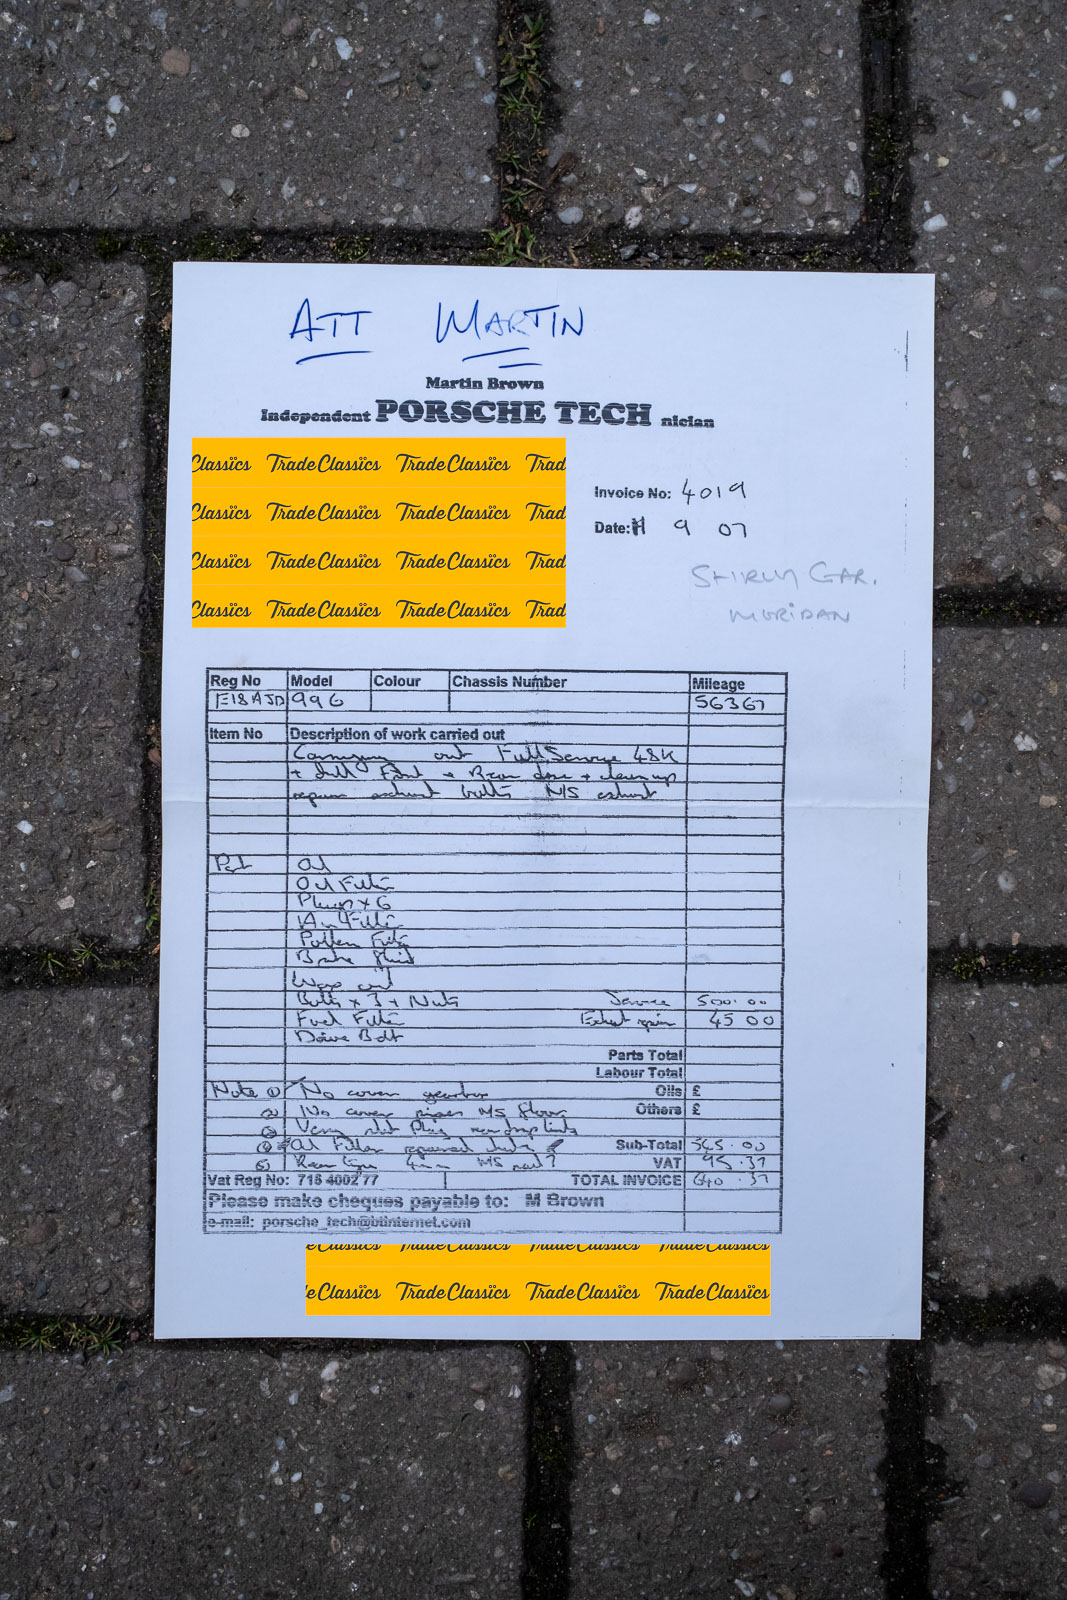 ATT MARTIN
Martin Brown
Independent PORSCHE TECH nician
Classics Trade Classics Trade Classics Trad
Classics Trade Classics Trade Classics Trad
Classics Trade Classics Trade Classics Trad
Classics Trade Classics Trade Classics Trad
Invoice No: 4019
Date: 9 07
GAR.
MERIDAN
Reg No Model Colour Chassis Number Mileage
E18AJD 996 56367
Item No Description of work carried out
Carrying out Full Service 48K
+ +
repair exhaust bolts N/S exhaust
Part Oil
Oil Filter
Plugs x 6
Air Filter
Pollen Filter
Brake fluid
Bolts x 3 + Nuts Service 500.00
Fuel Filter Exhaust repair 45 00
Drive Belt
Parts Total
Labour Total
Note 1 No cover gearbox Oils £
2 No cover N/S Others £
3 Very
4 Oil Filter Sub-Total 545.00
5 Rear 4mm N/S nail? VAT 95.37
Vat Reg No: 715 4002 77 TOTAL INVOICE 640.37
Please make cheques payable to: M Brown
e-mail: porsche_tech@btinternet.com
eClassics Trade Classics Trade Classics Trade Classics
eClassics Trade Classics Trade Classics Trade Classics